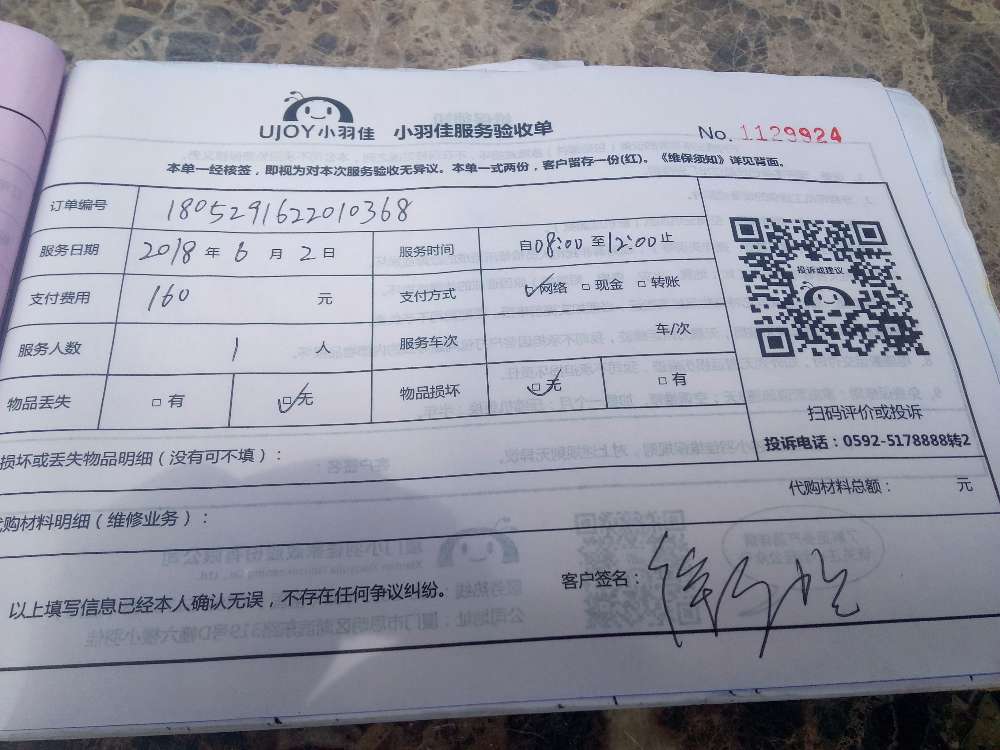 UJOY小羽佳 小羽佳服务验收单 No. 1129924
本单一经核签，即视为对本次服务验收无异议。本单一式两份，客户留存一份(红)。《维保须知》详见背面。
订单编号 1805291622010368
服务日期 2018 年 6 月 2 日 服务时间 自08:00至12:00止
投诉或建议
支付费用 160 元 支付方式 ☑网络 □现金 □转账
服务人数 1 人 服务车次 车/次
物品丢失 □有 ☑无 物品损坏 ☑无 □有
扫码评价或投诉
投诉电话：0592-5178888转2
损坏或丢失物品明细（没有可不填）：
代购材料总额： 元
购材料明细（维修业务）：
客户签名：
以上填写信息已经本人确认无误，不存在任何争议纠纷。